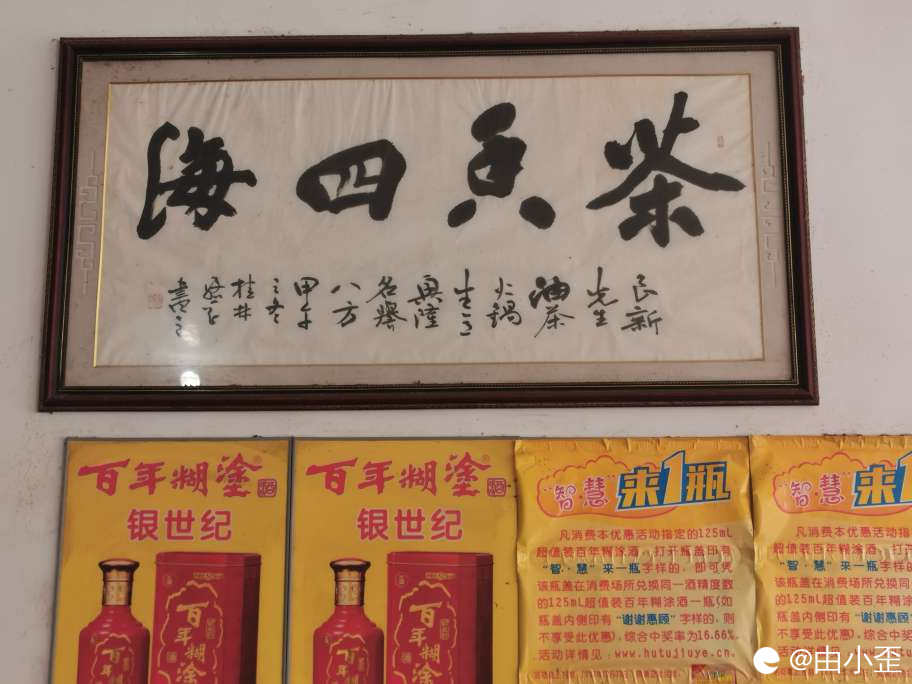 茶香四海
良新
先生
油茶
火锅
生意
兴隆
名誉
八方
甲午
之冬
桂林
书
百年糊塗®
银世纪
百年糊塗
百年糊塗®
银世纪
百年糊塗
“智·慧”来1瓶
凡消费本优惠活动指定的125mL
超值装百年糊涂酒，打开瓶盖印有
“智·慧”来一瓶字样的，即可凭
该瓶盖在消费场所兑换同一酒精度数
的125mL超值装百年糊涂酒一瓶(如
瓶盖内侧印有“谢谢惠顾”字样的，则
不享受此优惠)，综合中奖率为16.66%。
活动详情见：www.hutujiuye.cn
“智·慧”来1
凡消费本优惠活动指
超值装百年糊涂酒，打开
“智·慧”来一瓶字样的
该瓶盖在消费场所兑换同
的125mL超值装百年糊涂
瓶盖内侧印有“谢谢惠顾
不享受此优惠)，综合中奖
@由小歪